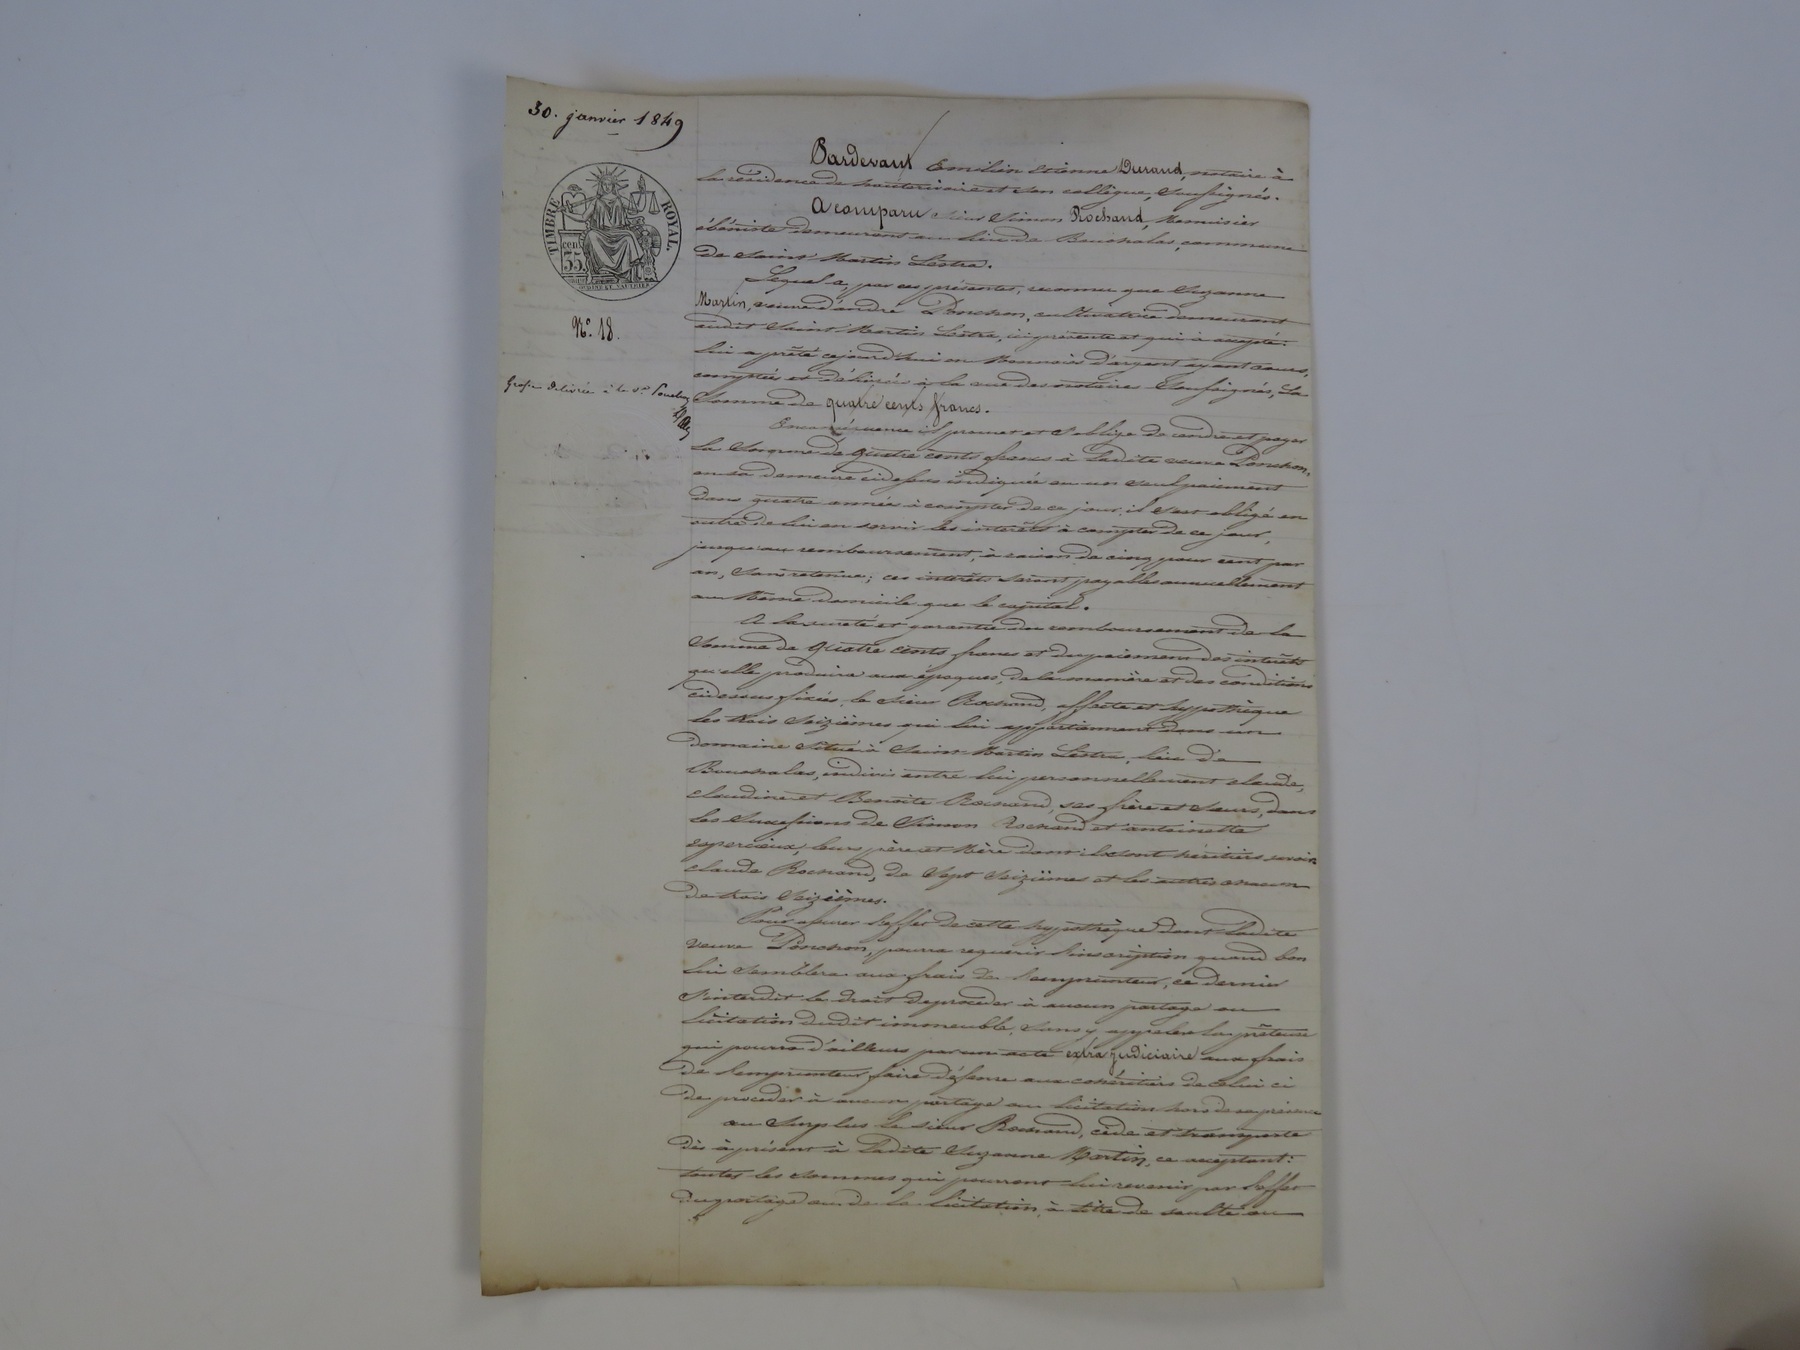 30. janvier 1849
TIMBRE ROYAL.
cen
35.
N.° 18.
Grosse délivrée à la v.e Ponchon
Pardevant Emilien Etienne Durand, notaire à
la résidence de et son collègue, soussignés.
A comparu sieur Simon Rochand, Menuisier
ébéniste demeurant au lieu de Bouchalas, commune
de Saint Martin Lestra.
Lequel a, par ces présentes, reconnu que Suzanne
Martin, veuve d'andré Ponchon, cultivatrice demeurant
audit Saint Martin Lestra, ici présente et qui a accepté:
lui a prêté cejourd'hui en Monnaie d'argent ayant cours,
comptée et délivrée à la vue des notaires Soussignés, La
Somme de quatre cents francs.
En conséquence il promet et s'oblige de rendre et payer
la Somme de quatre cents francs à Ladite veuve Ponchon,
en sa demeure cidessus indiquée en un seul paiement
dans quatre années à compter de ce jour; il s'est obligé en
outre de lui en servir les intérêts à compter de ce jour,
jusqu'au remboursement, à raison de cinq pour cent par
an, Sans retenue; ces intérêts seront payables annuellement
au Même domicile que le capital.
A la sureté et garantie du remboursement de la
Somme de quatre cents francs et du paiement des intérêts
qu'elle produira aux époques, de la manière et des conditions
cidessus fixées, le Sieur Rochand, affecte et hypothèque
les trois Seizièmes qui lui appartiennent dans un
domaine Situé à Saint Martin Lestra, lieu de
Bouchalas, indivis entre lui personnellement claude,
claudine et Benoite Rochand, ses frère et Sœurs, dans
les Successions de Simon Rochand et antoinette
leurs père et Mère dont ils sont héritiers savoir:
claude Rochand, de Sept Seizièmes et les autres chacun
de trois Seizièmes.
Pour assurer l'effet de cette hypothèque dont Ladite
veuve Ponchon, pourra requérir l'inscription quand bon
lui Semblera aux frais de l'emprunteur, ce dernier
s'interdit le droit de procéder à aucun partage ou
licitation dudit immeuble, Sans y appeler la prêteuse
qui pourra d'ailleurs par un acte extra judiciaire aux frais
de l'emprunteur faire défense aux cohéritiers de celui ci
de procéder à aucun partage ou licitation hors de sa présence
au Surplus le sieur Rochand, cède et transporte
dès à présent à Ladite Suzanne Martin, ce acceptant:
toutes les sommes qui pourront lui revenir par l'effet
du partage ou de la licitation, à titre de soulte ou